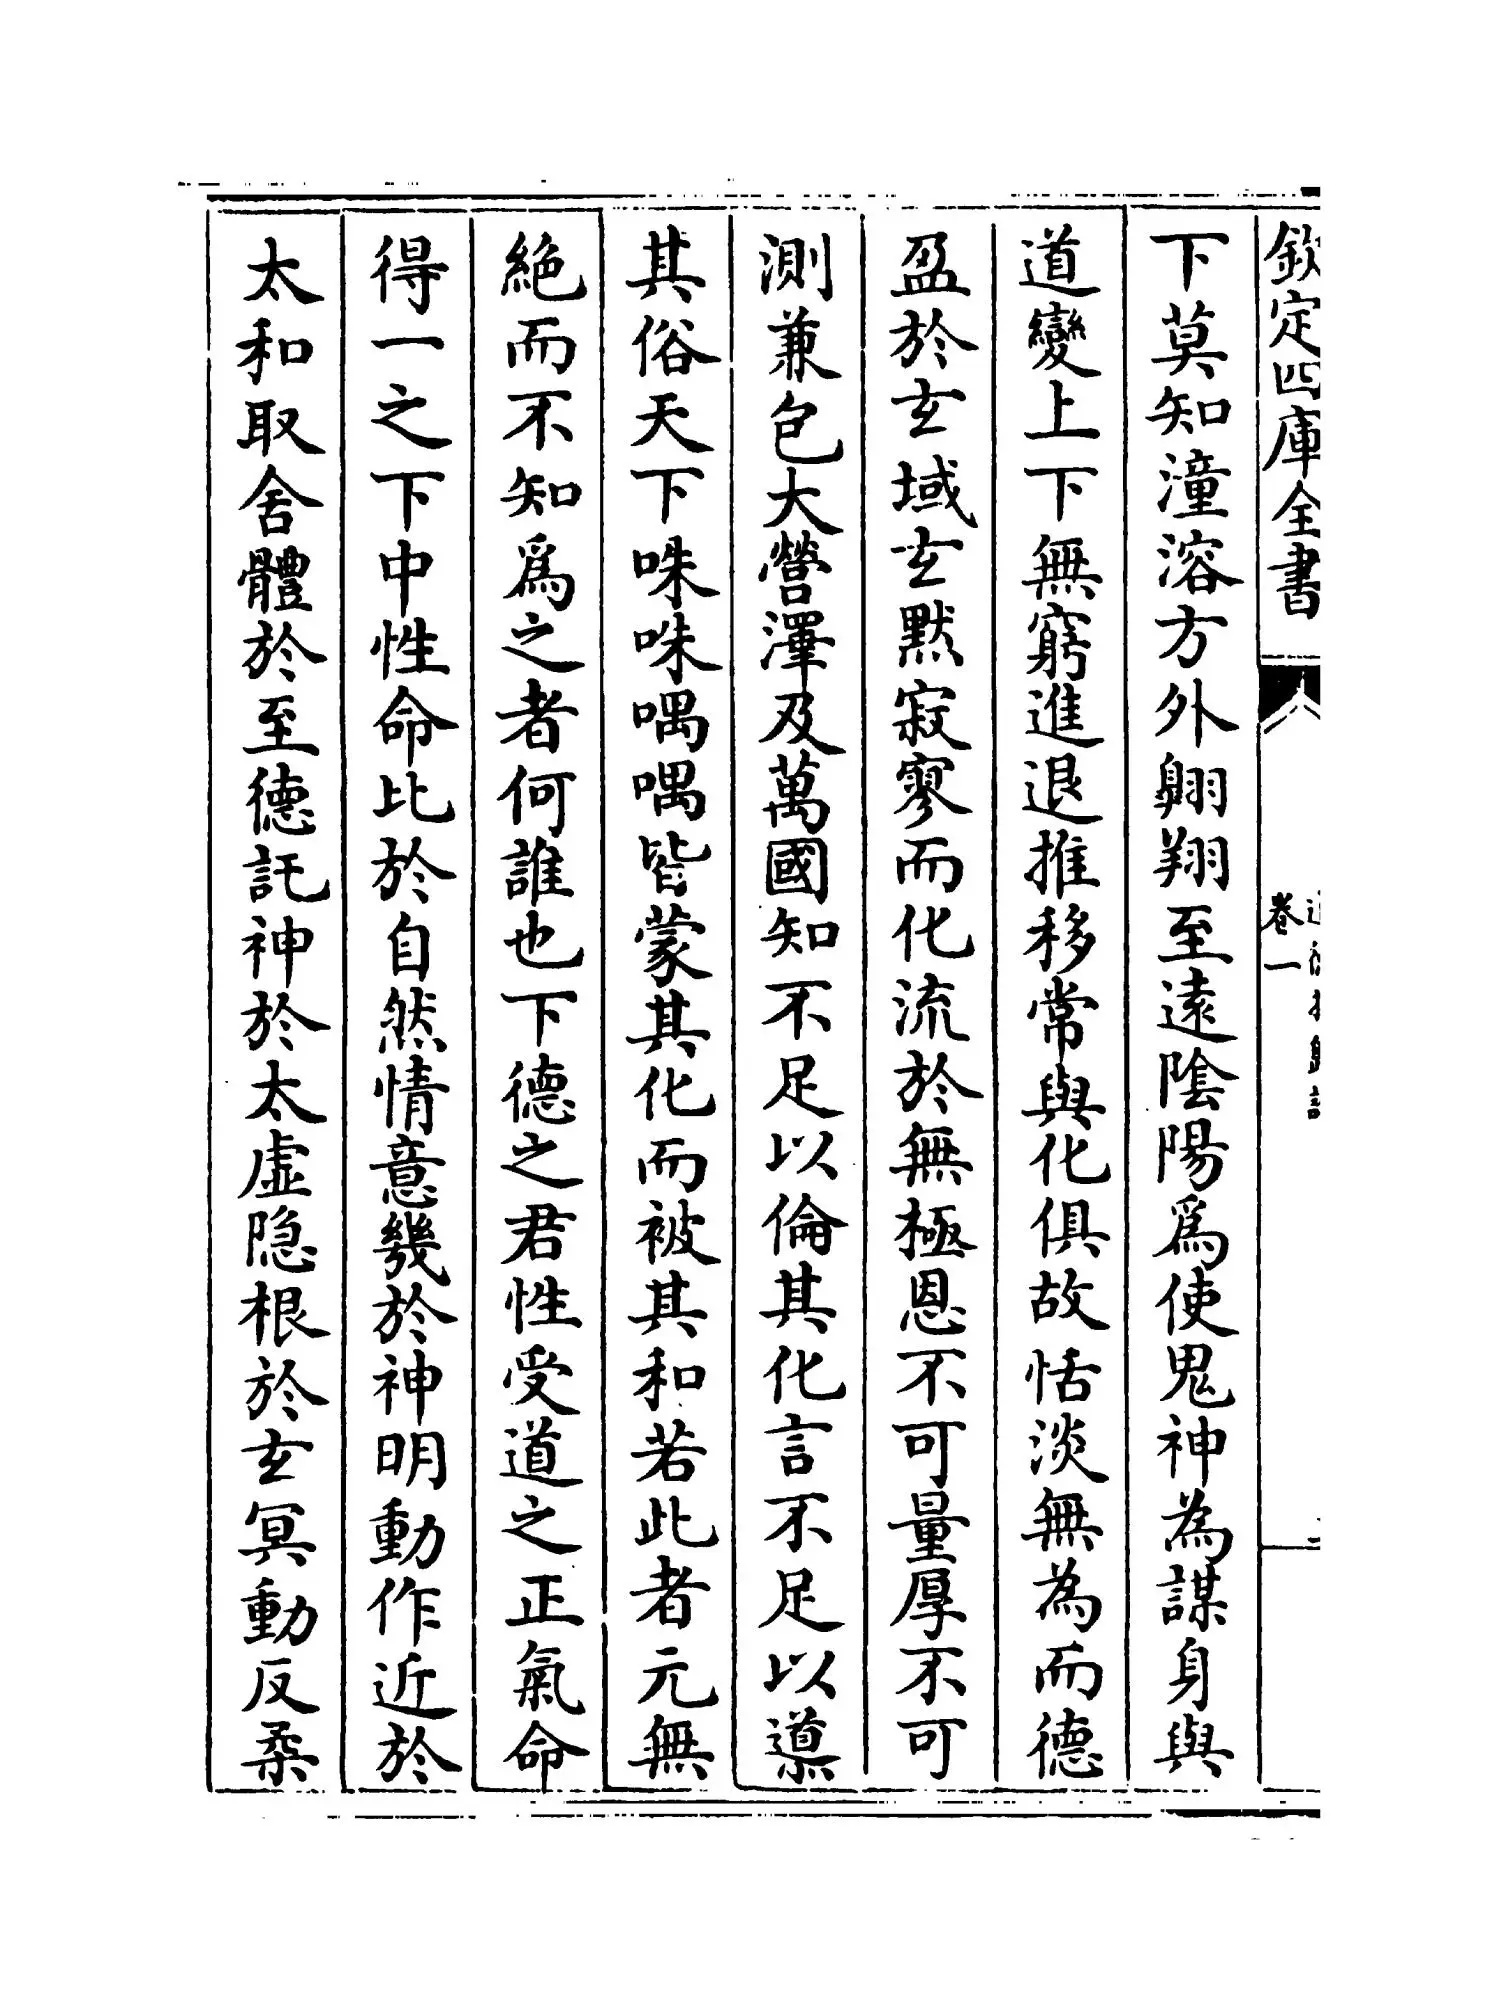 欽定四庫全書
卷一
下莫知潼溶方外翺翔至逺陰陽爲使鬼神為謀身與
道變上下無窮進退推移常與化俱故恬淡無為而德
盈於玄域玄默寂寥而化流於無極恩不可量厚不可
測兼包大營澤及萬國知不足以倫其化言不足以導
其俗天下咮咮喁喁皆蒙其化而被其和若此者元無
絶而不知爲之者何誰也下德之君性受道之正氣命
得一之下中性命比於自然情意幾於神明動作近於
太和取舍體於至德託神於太虛隠根於玄冥動反柔